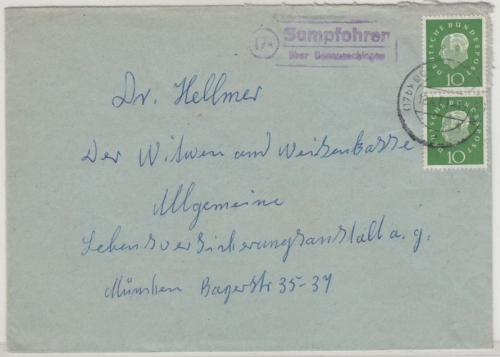 (17b)
Sumpfohren
über Donaueschingen
DEUTSCHE BUNDESPOST
10
(17b)
DEUTSCHE BUNDESPOST
10
Dr. Hellmer
Der Witwen und Weisenkasse
Allgemeine
Lebensversicherungsanstalt a. g.
München Bayerstr 35-37